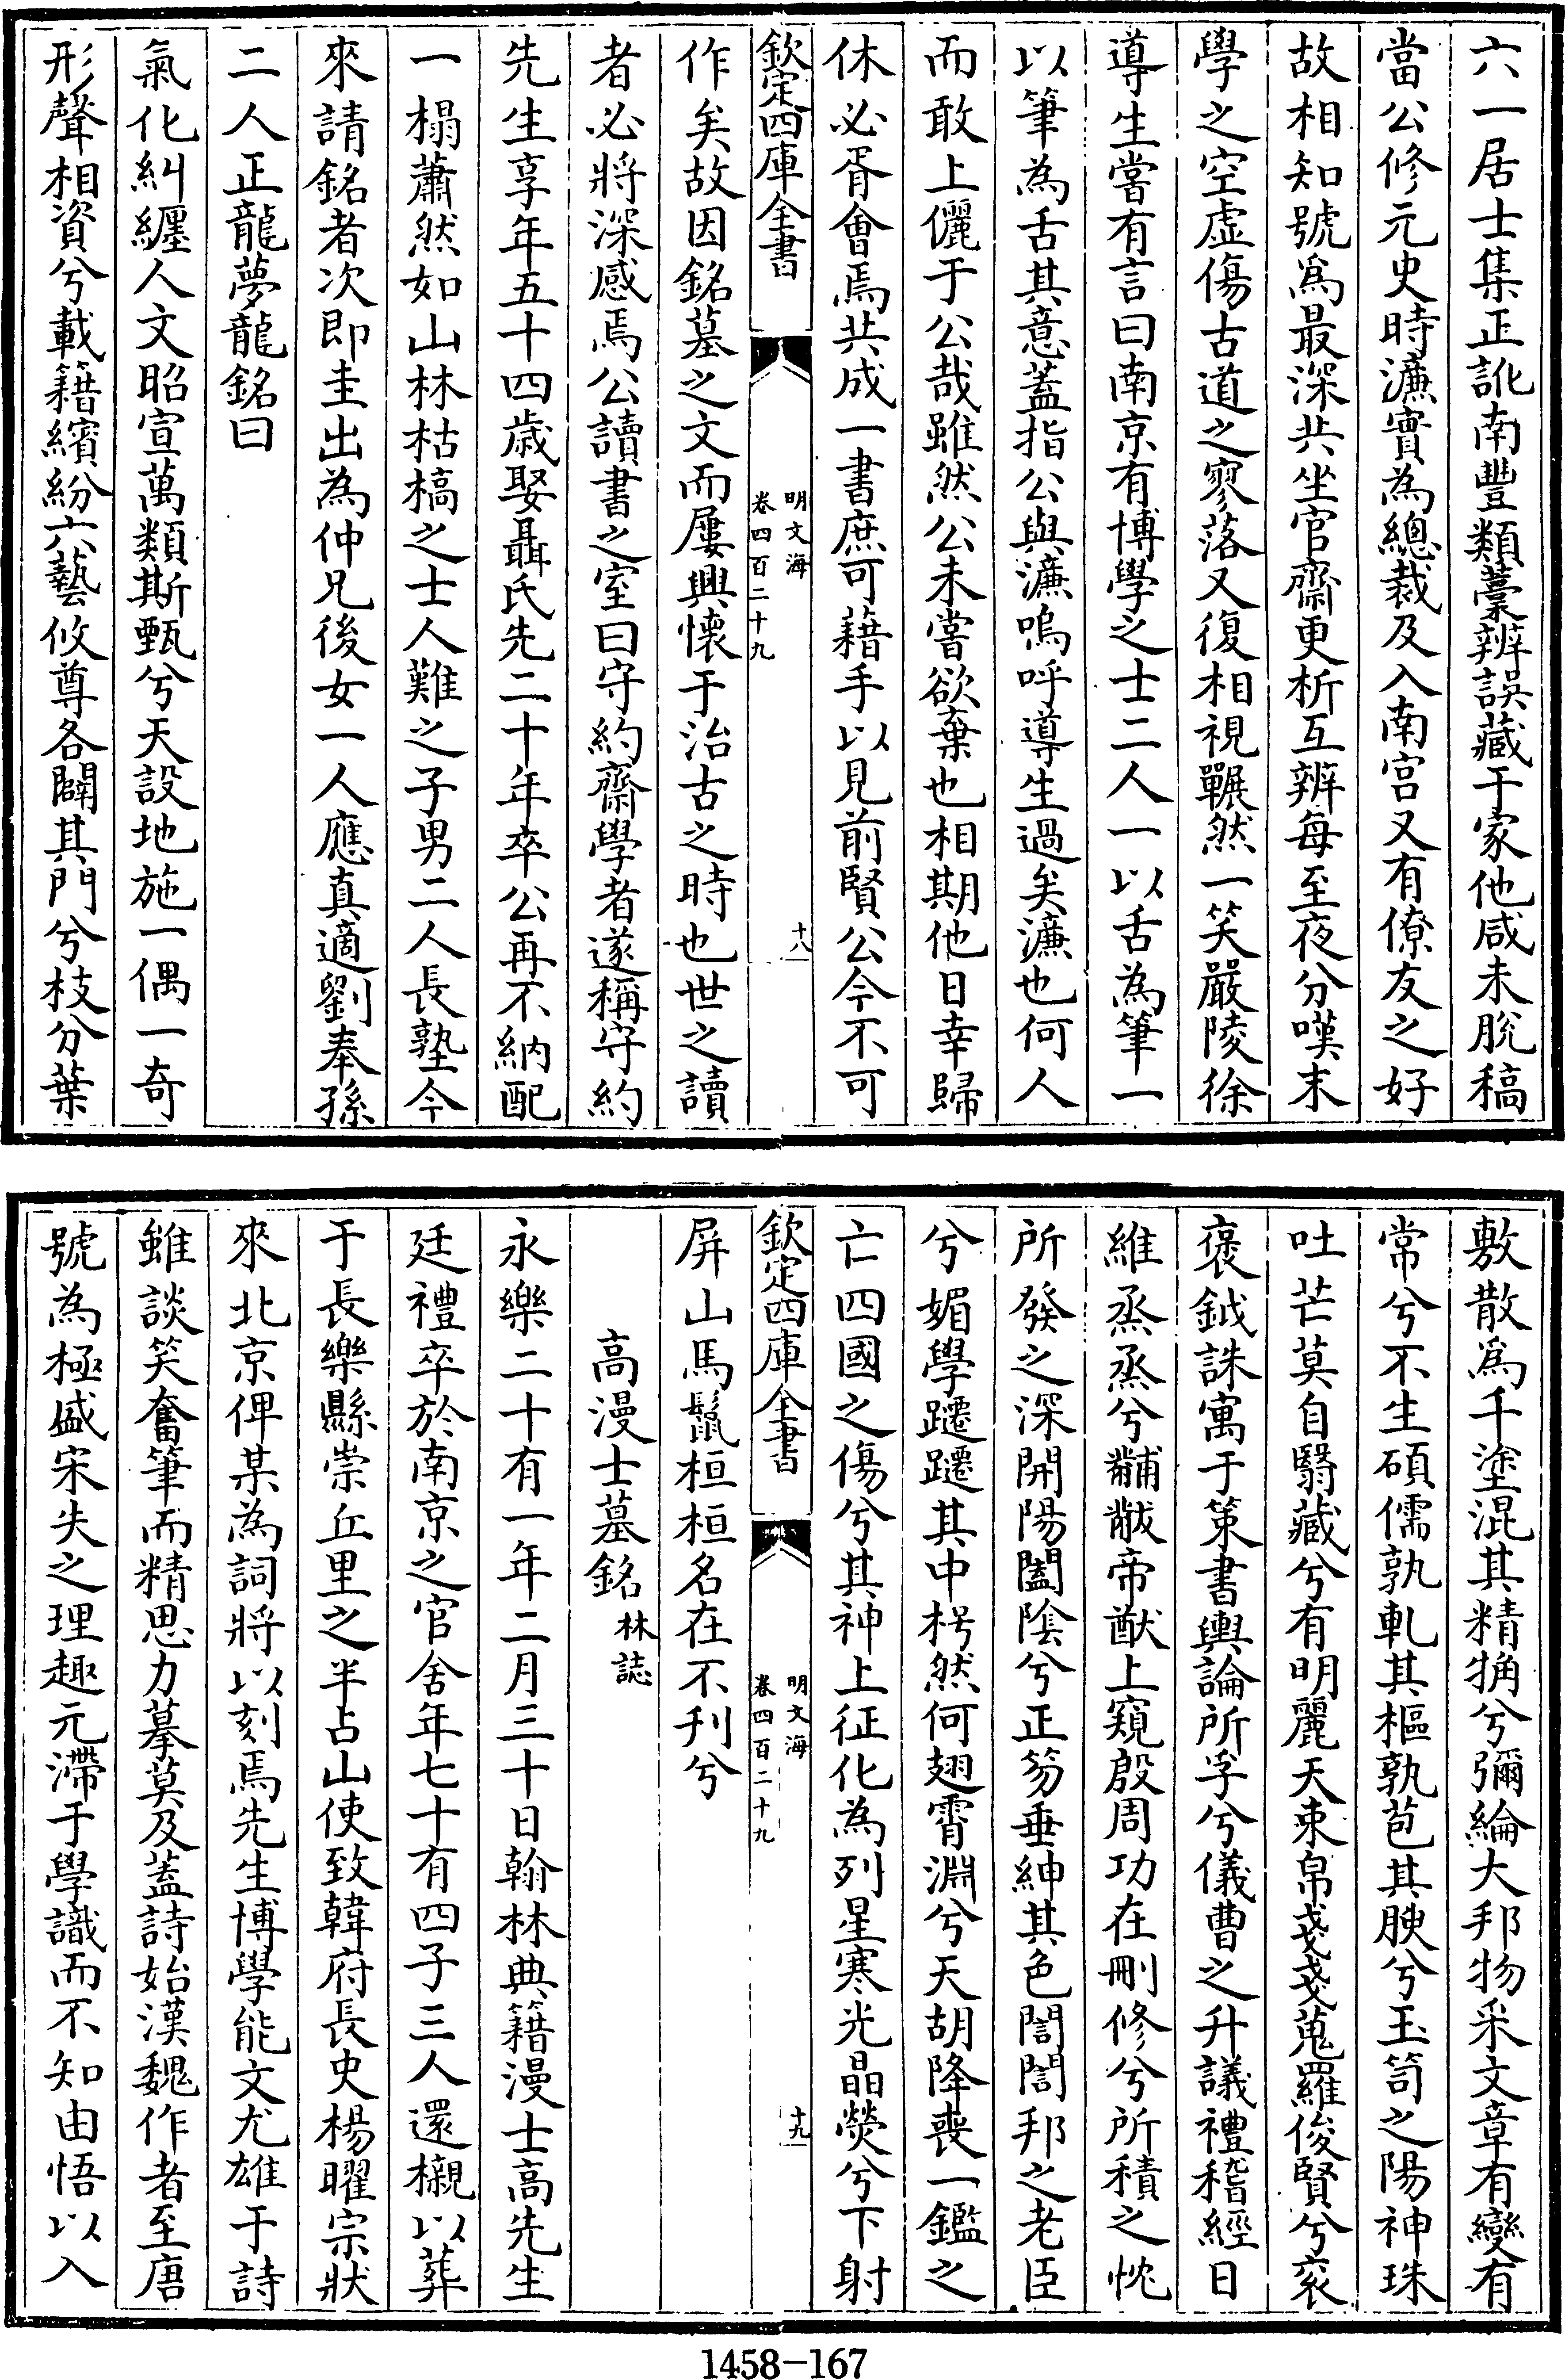 六一居士集正訛南豐類藁辨誤藏于家他咸未脫稿
當公修元史時濂實為總裁及入南宫又有僚友之好
故相知號爲最深共坐官齋更析互辨每至夜分嘆末
學之空虛傷古道之寥落又復相視囅然一笑嚴陵徐
導生嘗有言曰南京有博學之士二人一以舌為筆一
以筆為舌其意蓋指公與濂嗚呼導生過矣濂也何人
而敢上儷于公哉雖然公未嘗欲棄也相期他日幸歸
休必胥會焉共成一書庶可藉手以見前賢公今不可
欽定四庫全書
明文海
卷四百二十九
十八
作矣故因銘墓之文而屢興懷于治古之時也世之讀
者必將深感焉公讀書之室曰守約齋學者遂稱守約
先生享年五十四歲娶聶氏先二十年卒公再不納配
一榻蕭然如山林枯槁之士人難之子男二人長塾今
來請銘者次即圭出為仲兄後女一人應真適劉奉孫
二人正龍夢龍銘曰
氣化糾纒人文昭宣萬類斯甄兮天設地施一偶一奇
形聲相資兮載籍繽紛六藝攸尊各闢其門兮枝分葉
敷散爲千塗混其精觕兮彌綸大邦物采文章有變有
常兮不生碩儒孰軋其樞孰苞其腴兮玉笥之陽神珠
吐芒莫自翳藏兮有明麗天束帛戔戔蒐羅俊賢兮衮
褒鉞誅寓于策書輿論所孚兮儀曹之升議禮稽經日
維烝烝兮黼黻帝猷上窺殷周功在刪修兮所積之忱
所發之深開陽闔陰兮正笏垂紳其色誾誾邦之老臣
兮媚學躚躚其中枵然何翅霄淵兮天胡降喪一鑑之
亡四國之傷兮其神上征化為列星寒光晶熒兮下射
欽定四庫全書
明文海
卷四百二十九
十九
屏山馬鬛桓桓名在不刋兮
高漫士墓銘 林誌
永樂二十有一年二月三十日翰林典籍漫士高先生
廷禮卒於南京之官舍年七十有四子三人還櫬以葬
于長樂縣崇丘里之半占山使致韓府長史楊曜宗狀
來北京俾某為詞將以刻焉先生博學能文尤雄于詩
雖談笑奮筆而精思力摹莫及蓋詩始漢魏作者至唐
號為極盛宋失之理趣元滯于學識而不知由悟以入
1458-167